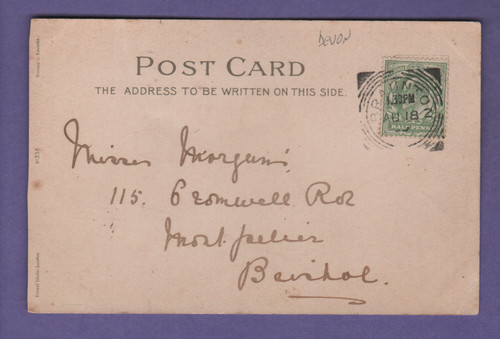 DEVON
POST CARD
THE ADDRESS TO BE WRITTEN ON THIS SIDE.
BRAUNTON
1.30PM
AU 18
2
HALFPENNY
Misses Morgans
115. Cromwell Rd
Montpelier
Bristol.